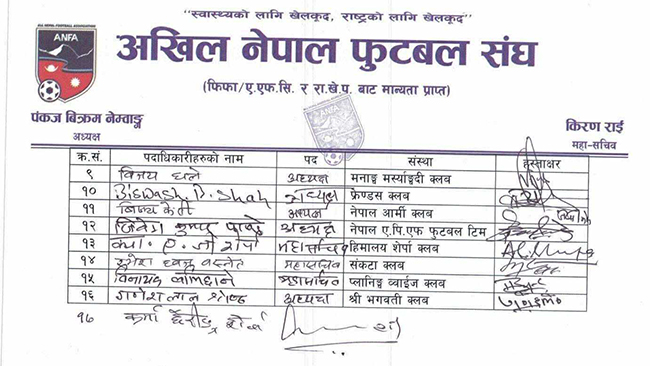 "स्वास्थ्यको लागि खेलकूद, राष्ट्रको लागि खेलकूद"
ALL NEPAL FOOTBALL ASSOCIATION
ANFA
अखिल नेपाल फुटबल संघ
(फिफा/ए.एफ.सि. र रा.खे.प. बाट मान्यता प्राप्त)
पंकज बिक्रम नेम्वाङ्ग
अध्यक्ष
किरण राई
महा-सचिव
क्र.सं. पदाधिकारीहरुको नाम पद संस्था हस्ताक्षर
९ विजय घले अध्यक्ष मनाङ मर्स्याङ्दी क्लब
१० Biswash B. Shah अध्यक्ष फ्रेण्डस क्लब
११ अध्यक्ष नेपाल आर्मी क्लब
१२ अध्यक्ष नेपाल ए.पि.एफ फुटबल टिम
१३ महासचिव हिमालय शेर्पा क्लब
१४ महासचिव संकटा क्लब
१५ विनायक महासचिव प्लानिङ्ग व्वाईज क्लब
१६ गणेशलाल अध्यक्ष श्री भगवती क्लब
१७ कर्मा शेर्पा